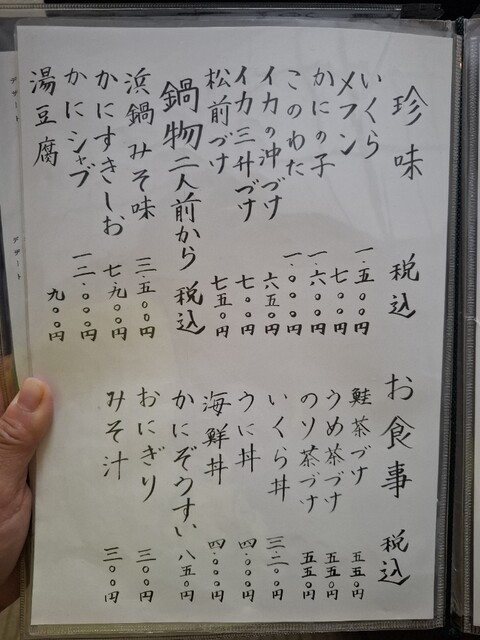 珍味 税込
いくら 一.五〇〇円
メフン 七〇〇円
かにの子 一.六〇〇円
このわた 一.〇〇〇円
イカの沖づけ 六五〇円
イカ三升づけ 七〇〇円
松前づけ 七五〇円
鍋物二人前から 税込
浜鍋みそ味 三.五〇〇円
かにすきしお 七.九〇〇円
かにシャブ 一二.〇〇〇円
湯豆腐 九〇〇円
お食事 税込
鮭茶づけ 五五〇円
うめ茶づけ 五五〇円
のり茶づけ 五五〇円
いくら丼 三.二〇〇円
うに丼 四.〇〇〇円
海鮮丼 四.〇〇〇円
かにぞうすい 八五〇円
おにぎり 三〇〇円
みそ汁 三〇〇円
デザート
デザート